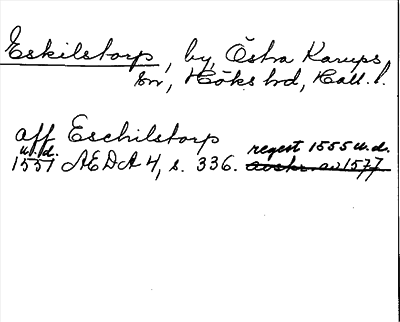 Eskilstorp, by, Östra Karups
sn, Höks hd, Hall. l.
aff Eschilstorp
u.d. regest 1555 u.d.
1551 ÆDA 4, s. 336. avskr. av 1577